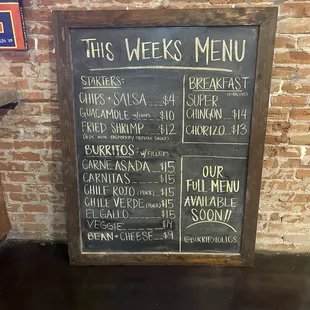 THIS WEEKS MENU
STARTERS:
CHIPS + SALSA $4
GUACAMOLE W/CHIPS $10
FRIED SHRIMP $12
BURRITOS: W/FILLERS
CARNE ASADA $15
CARNITAS $15
CHILE ROJO (PORK) $15
CHILE VERDE (PORK) $15
EL GALLO $15
VEGGIE $14
BEAN + CHEESE $9
BREAKFAST
SUPER
CHINGON $14
CHORIZO $13
OUR
FULL MENU
AVAILABLE
SOON!!
@BURRITOHOLICS